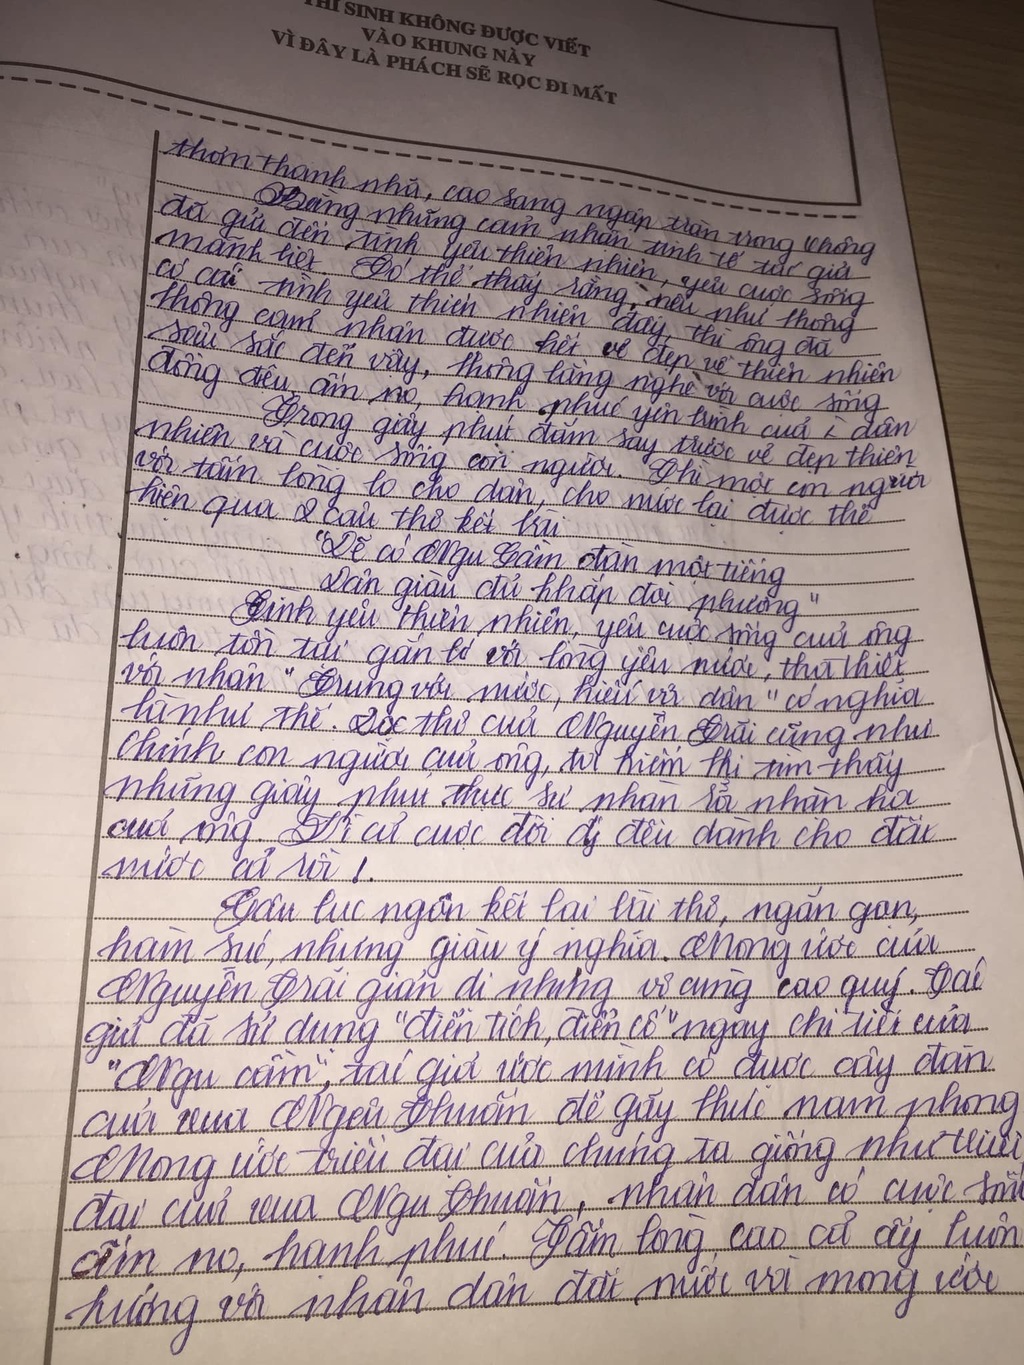 THÍ SINH KHÔNG ĐƯỢC VIẾT
VÀO KHUNG NÀY
VÌ ĐÂY LÀ PHÁCH SẼ RỌC ĐI MẤT
thơm thanh nhã, cao sang ngập tràn trong không
Bằng những cảm nhận tinh tế tác giả
đã gửi đến tình yêu thiên nhiên, yêu cuộc sống
mãnh liệt. Có thể thấy rằng, nếu như không
có cái tình yêu thiên nhiên đấy thì ông đã
không cảm nhận được hết vẻ đẹp về thiên nhiên
sâu sắc đến vậy, không lắng nghe với cuộc sống
đông đều, ấm no, hạnh phúc yên bình của dân
Trong giây phút đắm say trước vẻ đẹp thiên
nhiên và cuộc sống con người. Thì một con người
với tấm lòng lo cho dân, cho nước lại được thể
hiện qua 2 câu thơ kết bài
"Dẽ có Ngu Cầm đàn một tiếng
Dân giàu đủ khắp đòi phương"
Tình yêu thiên nhiên, yêu cuộc sống của ông
luôn tồn tại gắn bó với lòng yêu nước, tha thiết
với nhân "Trung với nước, hiếu với dân" có nghĩa
là như thế. Đọc thơ của Nguyễn Trãi cũng như
chính con người của ông, ta hiếm khi tìm thấy
những giây phút thực sự nhàn rỗi nhàn hạ
của ông. Vì cả cuộc đời ấy đều dành cho đất
nước cả rồi!.
Câu lục ngôn kết lại bài thơ, ngắn gọn,
hàm súc, nhưng giàu ý nghĩa. Mong ước của
Nguyễn Trãi giản dị nhưng vô cùng cao quý. Tác
giả đã sử dụng "điển tích, điển cố" ngay chi tiết của
"Ngu cầm", tác giả ước mình có được cây đàn
của vua Nghêu Thuấn để gảy khúc nam phong
Mong ước triều đại của chúng ta giống như triều
đại của vua Ngu Thuấn, nhân dân có cuộc sống
ấm no, hạnh phúc. Tấm lòng cao cả ấy luôn
hướng với nhân dân đất nước và mong ước